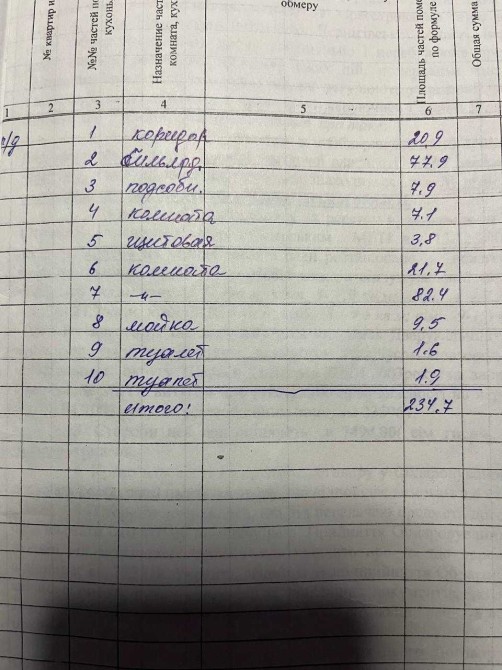 обмеру
№ квартир и
№№ частей по
кухонь
Назначение част
комната, кух
Площадь частей поме
по формуле
Общая сумма
1 2 3 4 5 6 7
п/д 1 коридор 20,9
2 бильярд. 77.9
3 подсобн. 7,9
4 комната 7.1
5 щитовая 3,8
6 комната 21,7
7 -"- 82.4
8 мойка 9,5
9 туалет 1.6
10 туалет 1.9
итого: 234,7